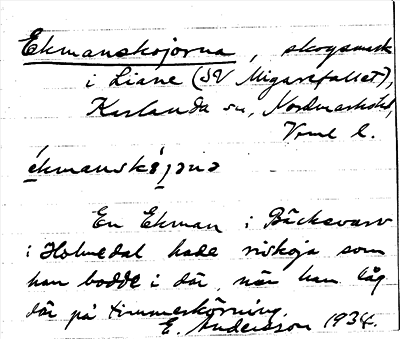 Ekmanskojorna, skogsmark
i Liane (SV Migarefallet),
Karlanda sn, Nordmarks hd,
Vrml l.
ékmanskåjɔnɔ
En Ekman i Bäckevarv
i Holmedal hade riskoja som
han bodde i där, när han låg
där på timmerkörning.
E. Andersson 1934.